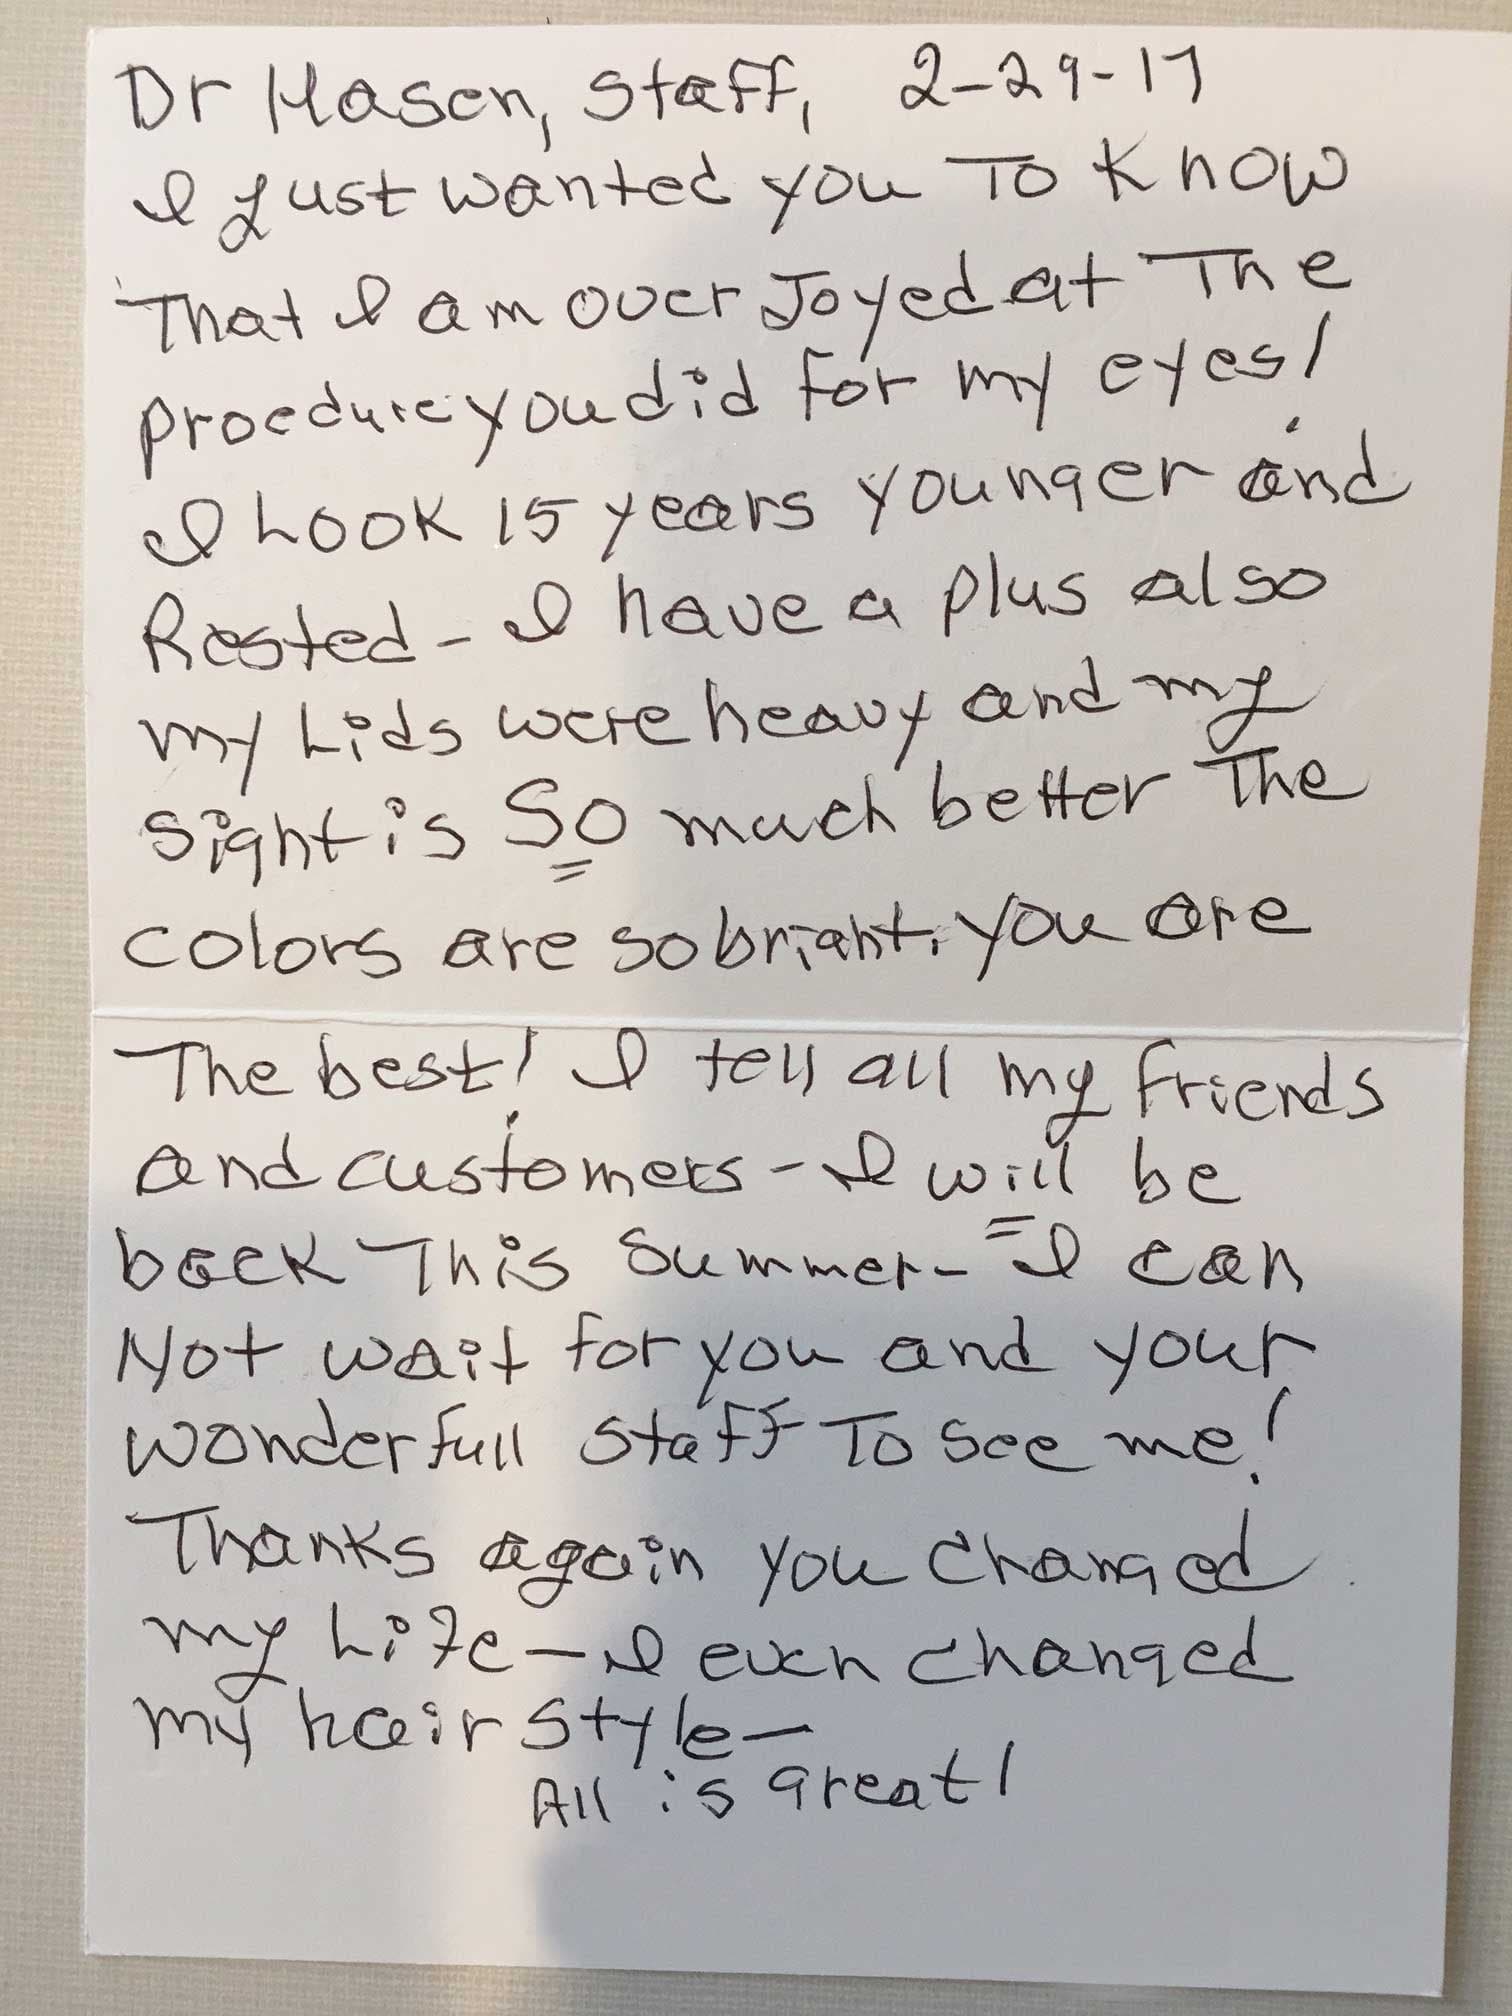 Dr Hasen, Staff, 2-29-17
I just wanted you To Know
That I am over Joyed at The
procedure you did for my eyes!
I Look 15 years younger and
Rested - I have a plus also
my Lids were heavy and my
sight is SO much better The
colors are so bright. You are
The best! I tell all my friends
and customers - I will be
back This Summer - I can
Not wait for you and your
wonderfull staff To see me!
Thanks again you changed
my Life - I even changed
my hair style -
All is great!